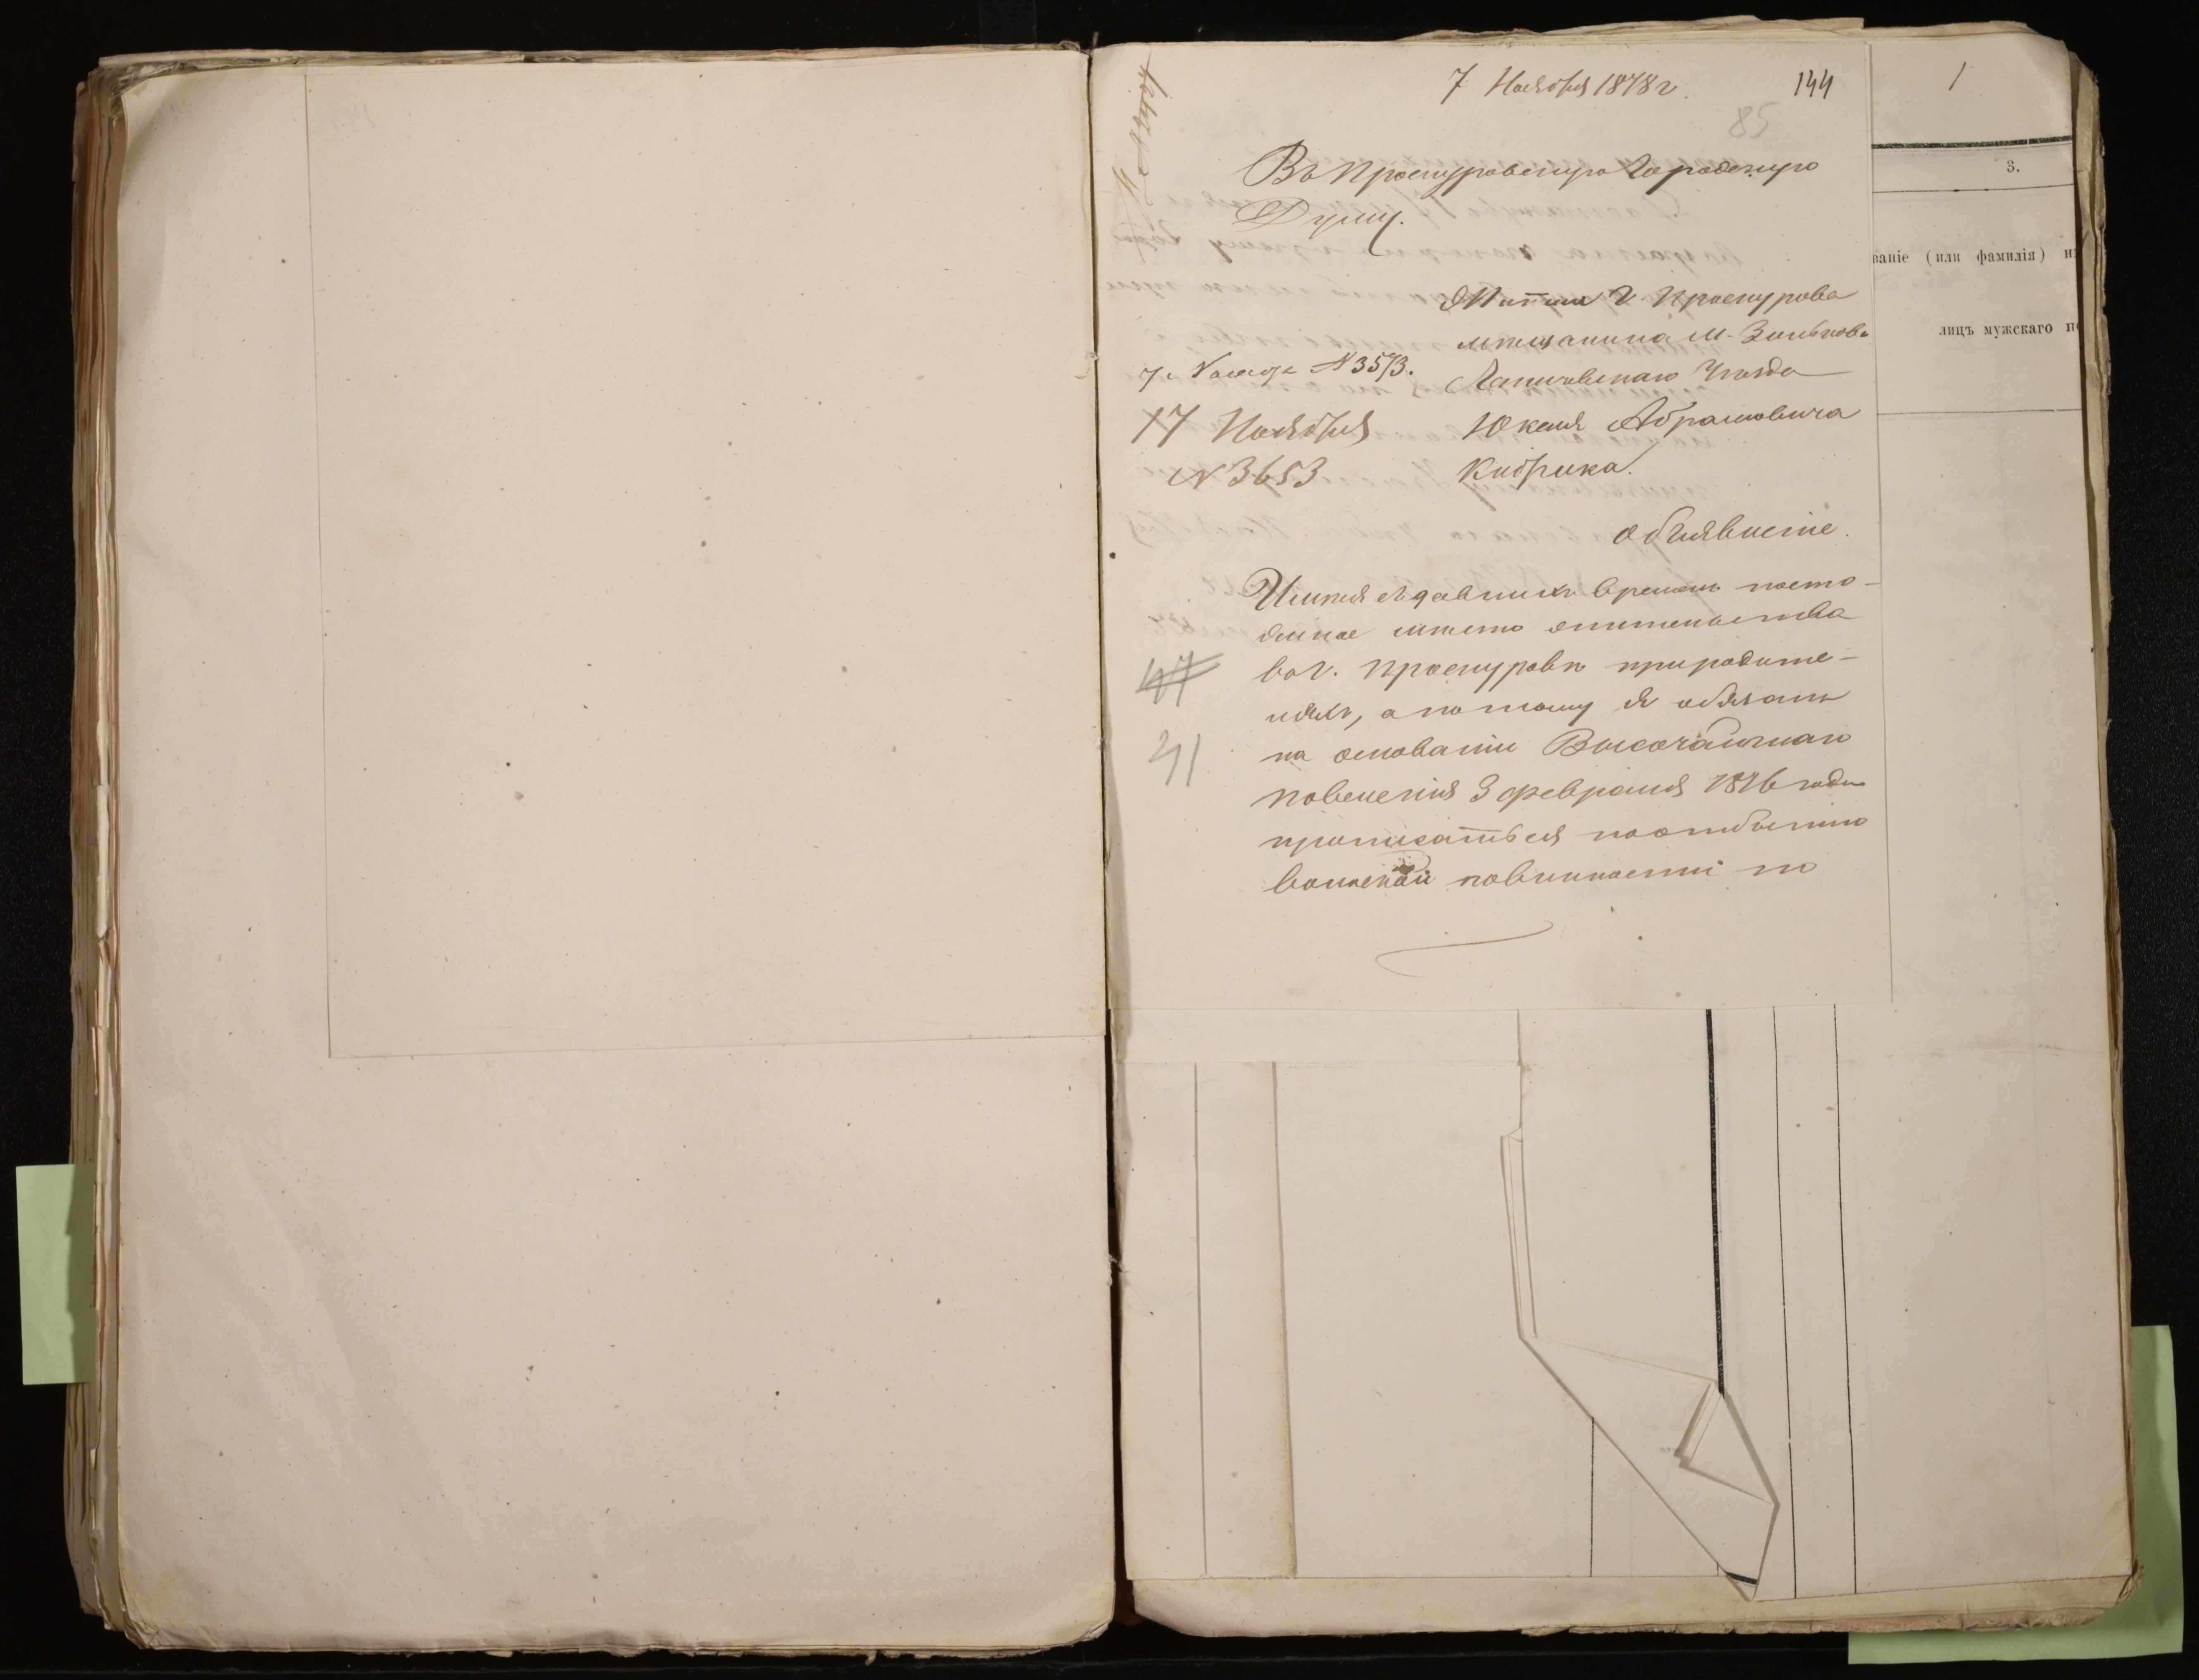 7 Ноября 1878 г.
144
85
Въ Проскуровскую Городскую
Думу.
Жителя г. Проскурова
мѣщанина м. Зинькова
Летичевскаго Уѣзда
Юкеля Абрамовича
Кибрика.
№ 3573.
17 Ноября
№ 3653
Объявленіе.
Имѣя съ давнихъ временъ посто-
янное мѣсто жительства
въ г. Проскуровѣ при родите-
ляхъ, а потому я обязанъ
на основаніи Высочайшаго
повеленія 3 февраля 1876 года
приписаться по отбытію
воинской повинности по
47
41
1
3.
ваніе (или фамилія) и
лицъ мужскаго п